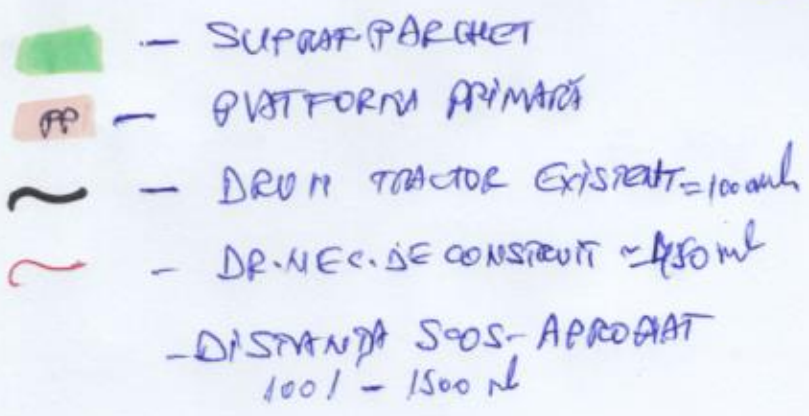 — SUPRAF. PARCHET
PP — PLATFORMA PRIMARĂ
— DRUM TRACTOR EXISTENT = 1000 ml
- DR. NEC. DE CONSTRUIT ~ 450 ml
- DISTANȚA SCOS-APROPIAT
1001 - 1500 ml